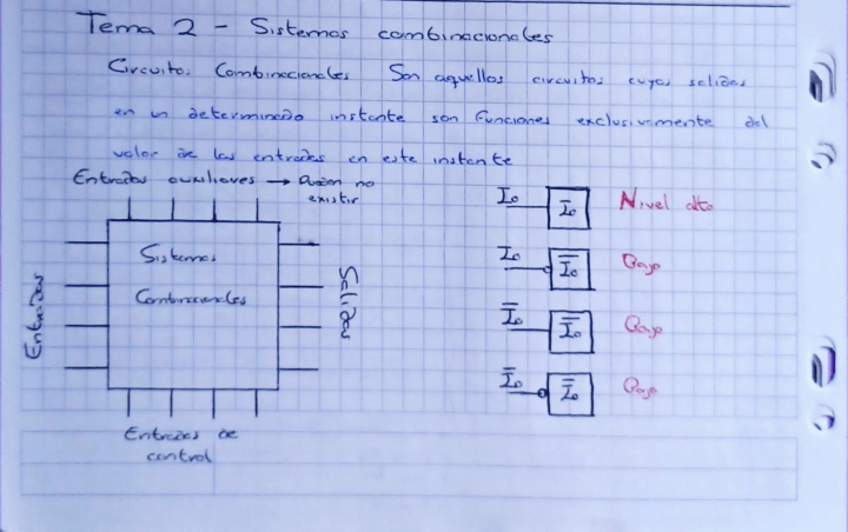 Tema 2 - Sistemas combinacionales
Circuitos Combinacionales Son aquellos circuitos cuyas salidas
en un determinado instante son funciones exclusivamente del
valor de las entradas en este instante
Entradas auxiliares → Pueden no
existir
Sistemas
Combinacionales
Entradas
Salidas
Entradas de
control
I₀ I₀ Nivel alto
I₀ I̅₀ Bajo
I̅₀ I̅₀ Bajo
I̅₀ I̅₀ Bajo